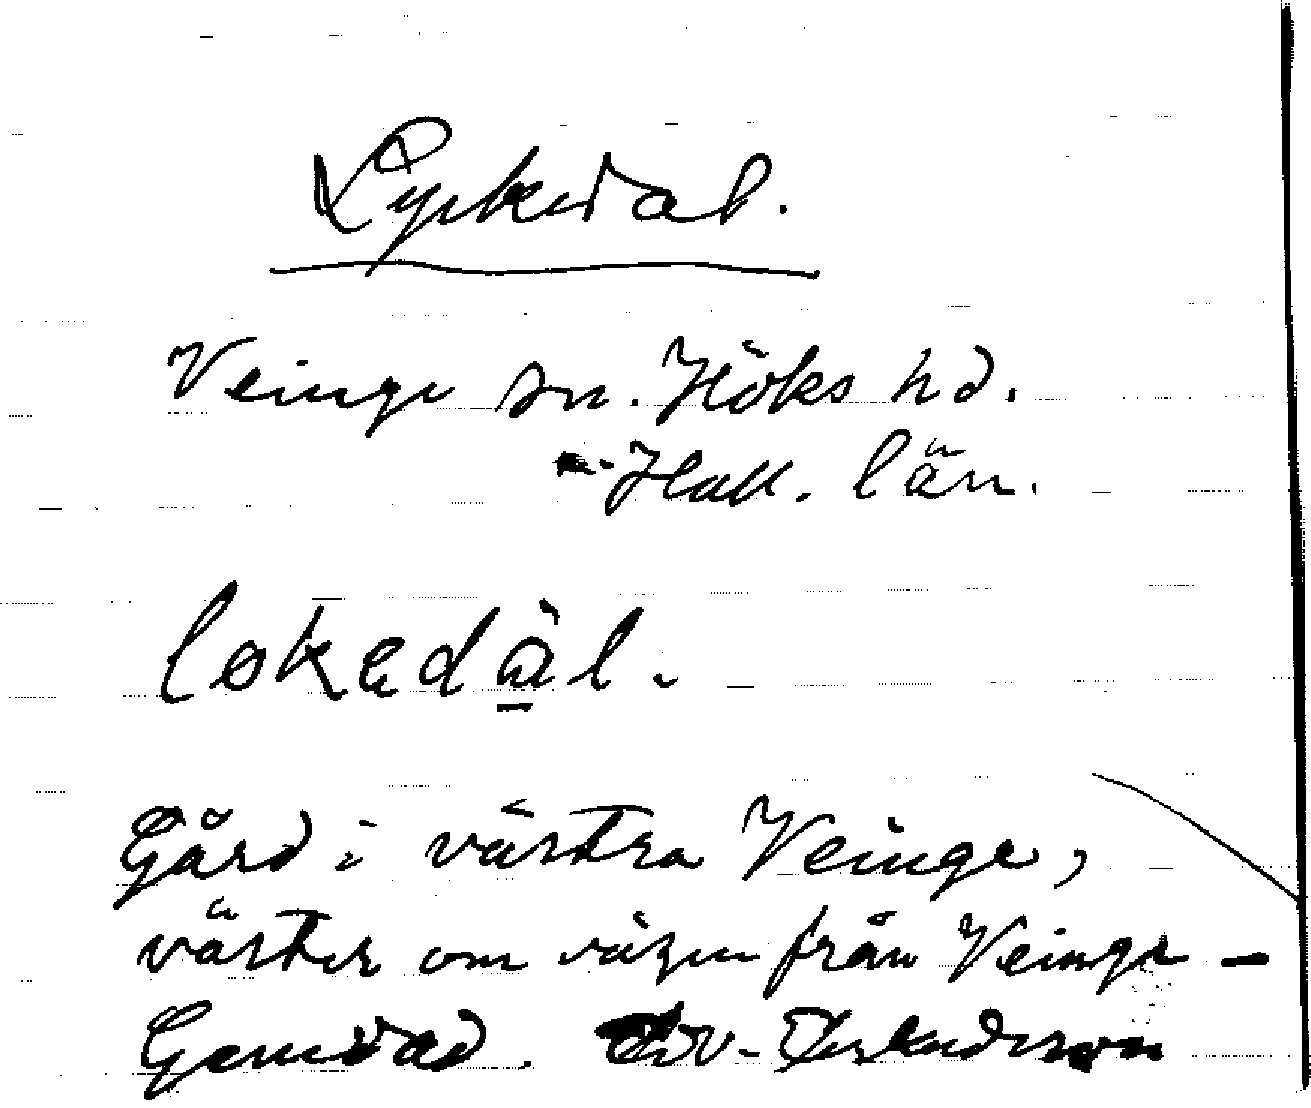 Lyckedal.
Veinge sn. Höks hd.
Hall. län.
lokadàl.
Gård i västra Veinge,
väster om vägen från Veinge -